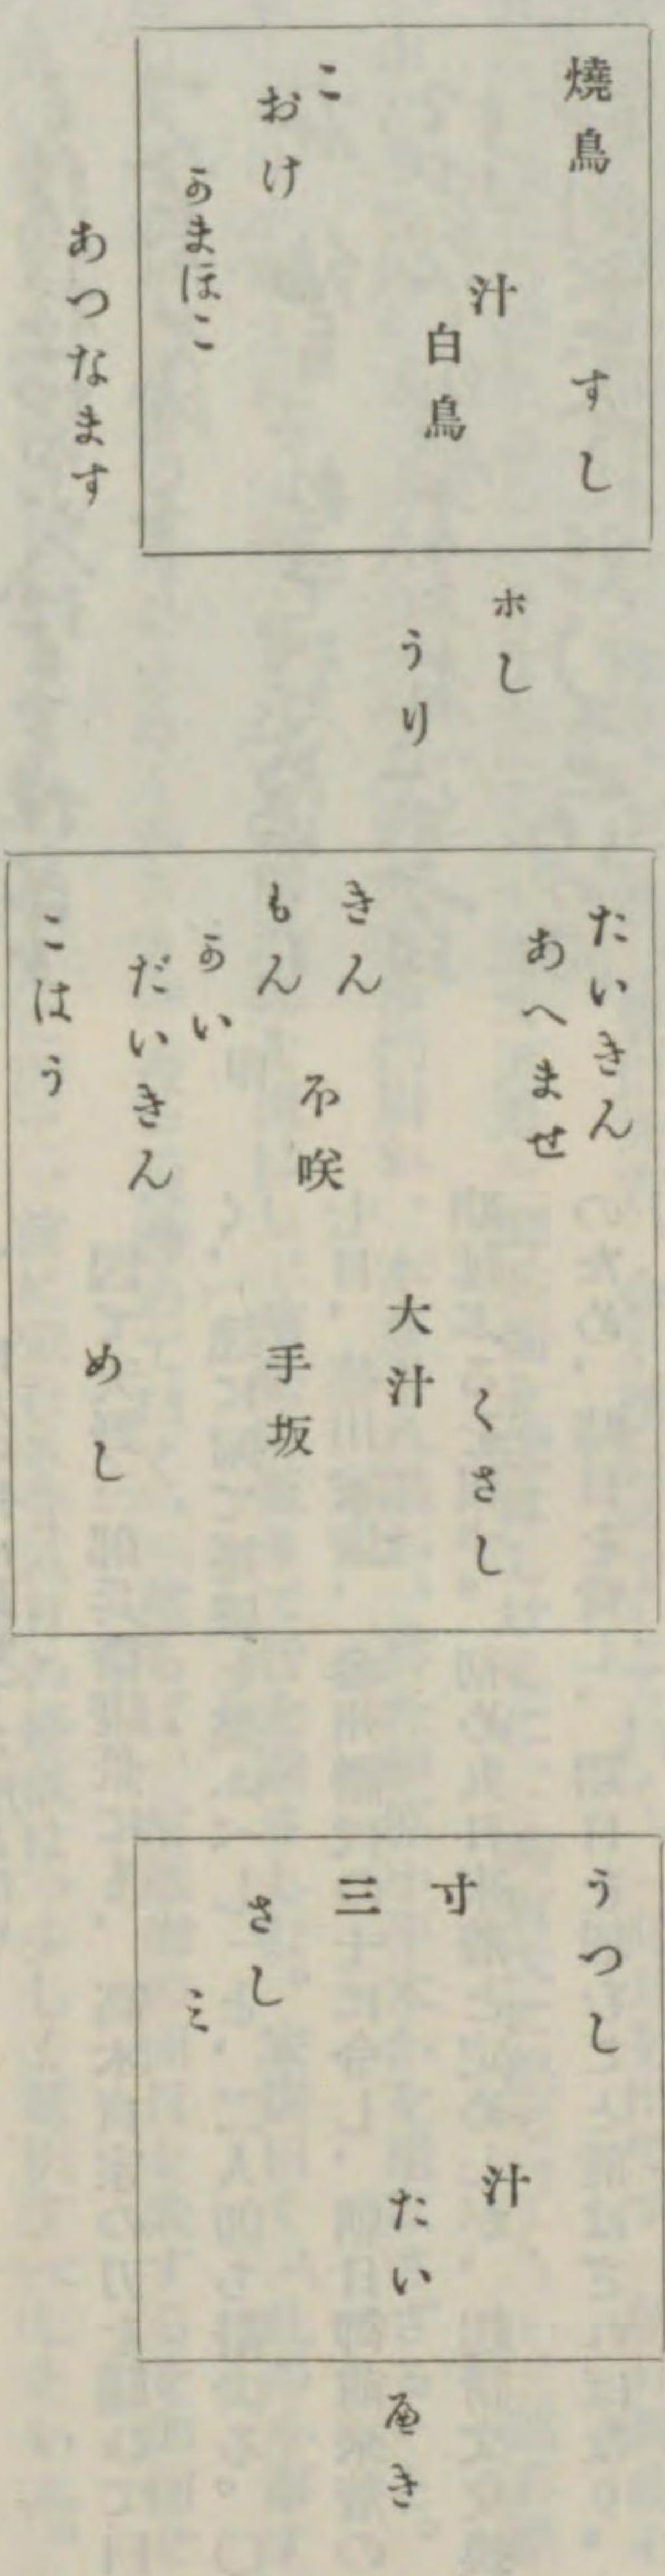 燒鳥
すし
汁
白鳥
こ
おけ
かまほこ
あつなます
ホし
うり
たいきん
あへませ
くさし
大汁
きん
もん
不咲
手坂
かい
だいきん
めし
こはう
うつし
汁
たい
寸
三
さし
ミ